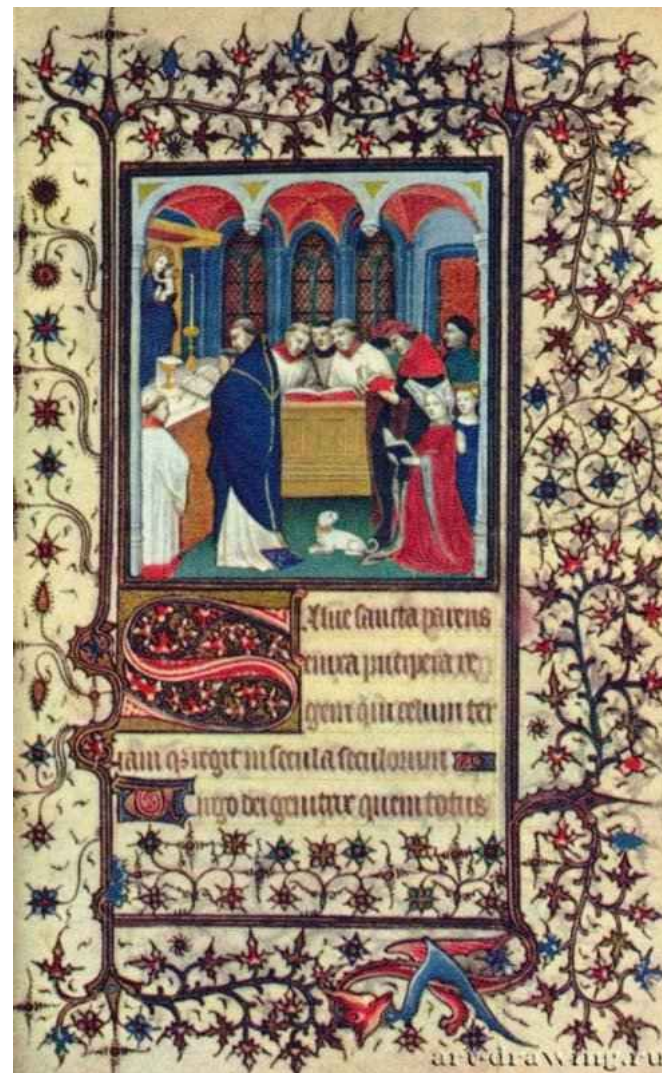 Salue sancta parens
enixa puerpera re
gem qui celum ter
ram q; regit in secula seculorum
Virgo dei genitrix quem totus
art-drawing.ru